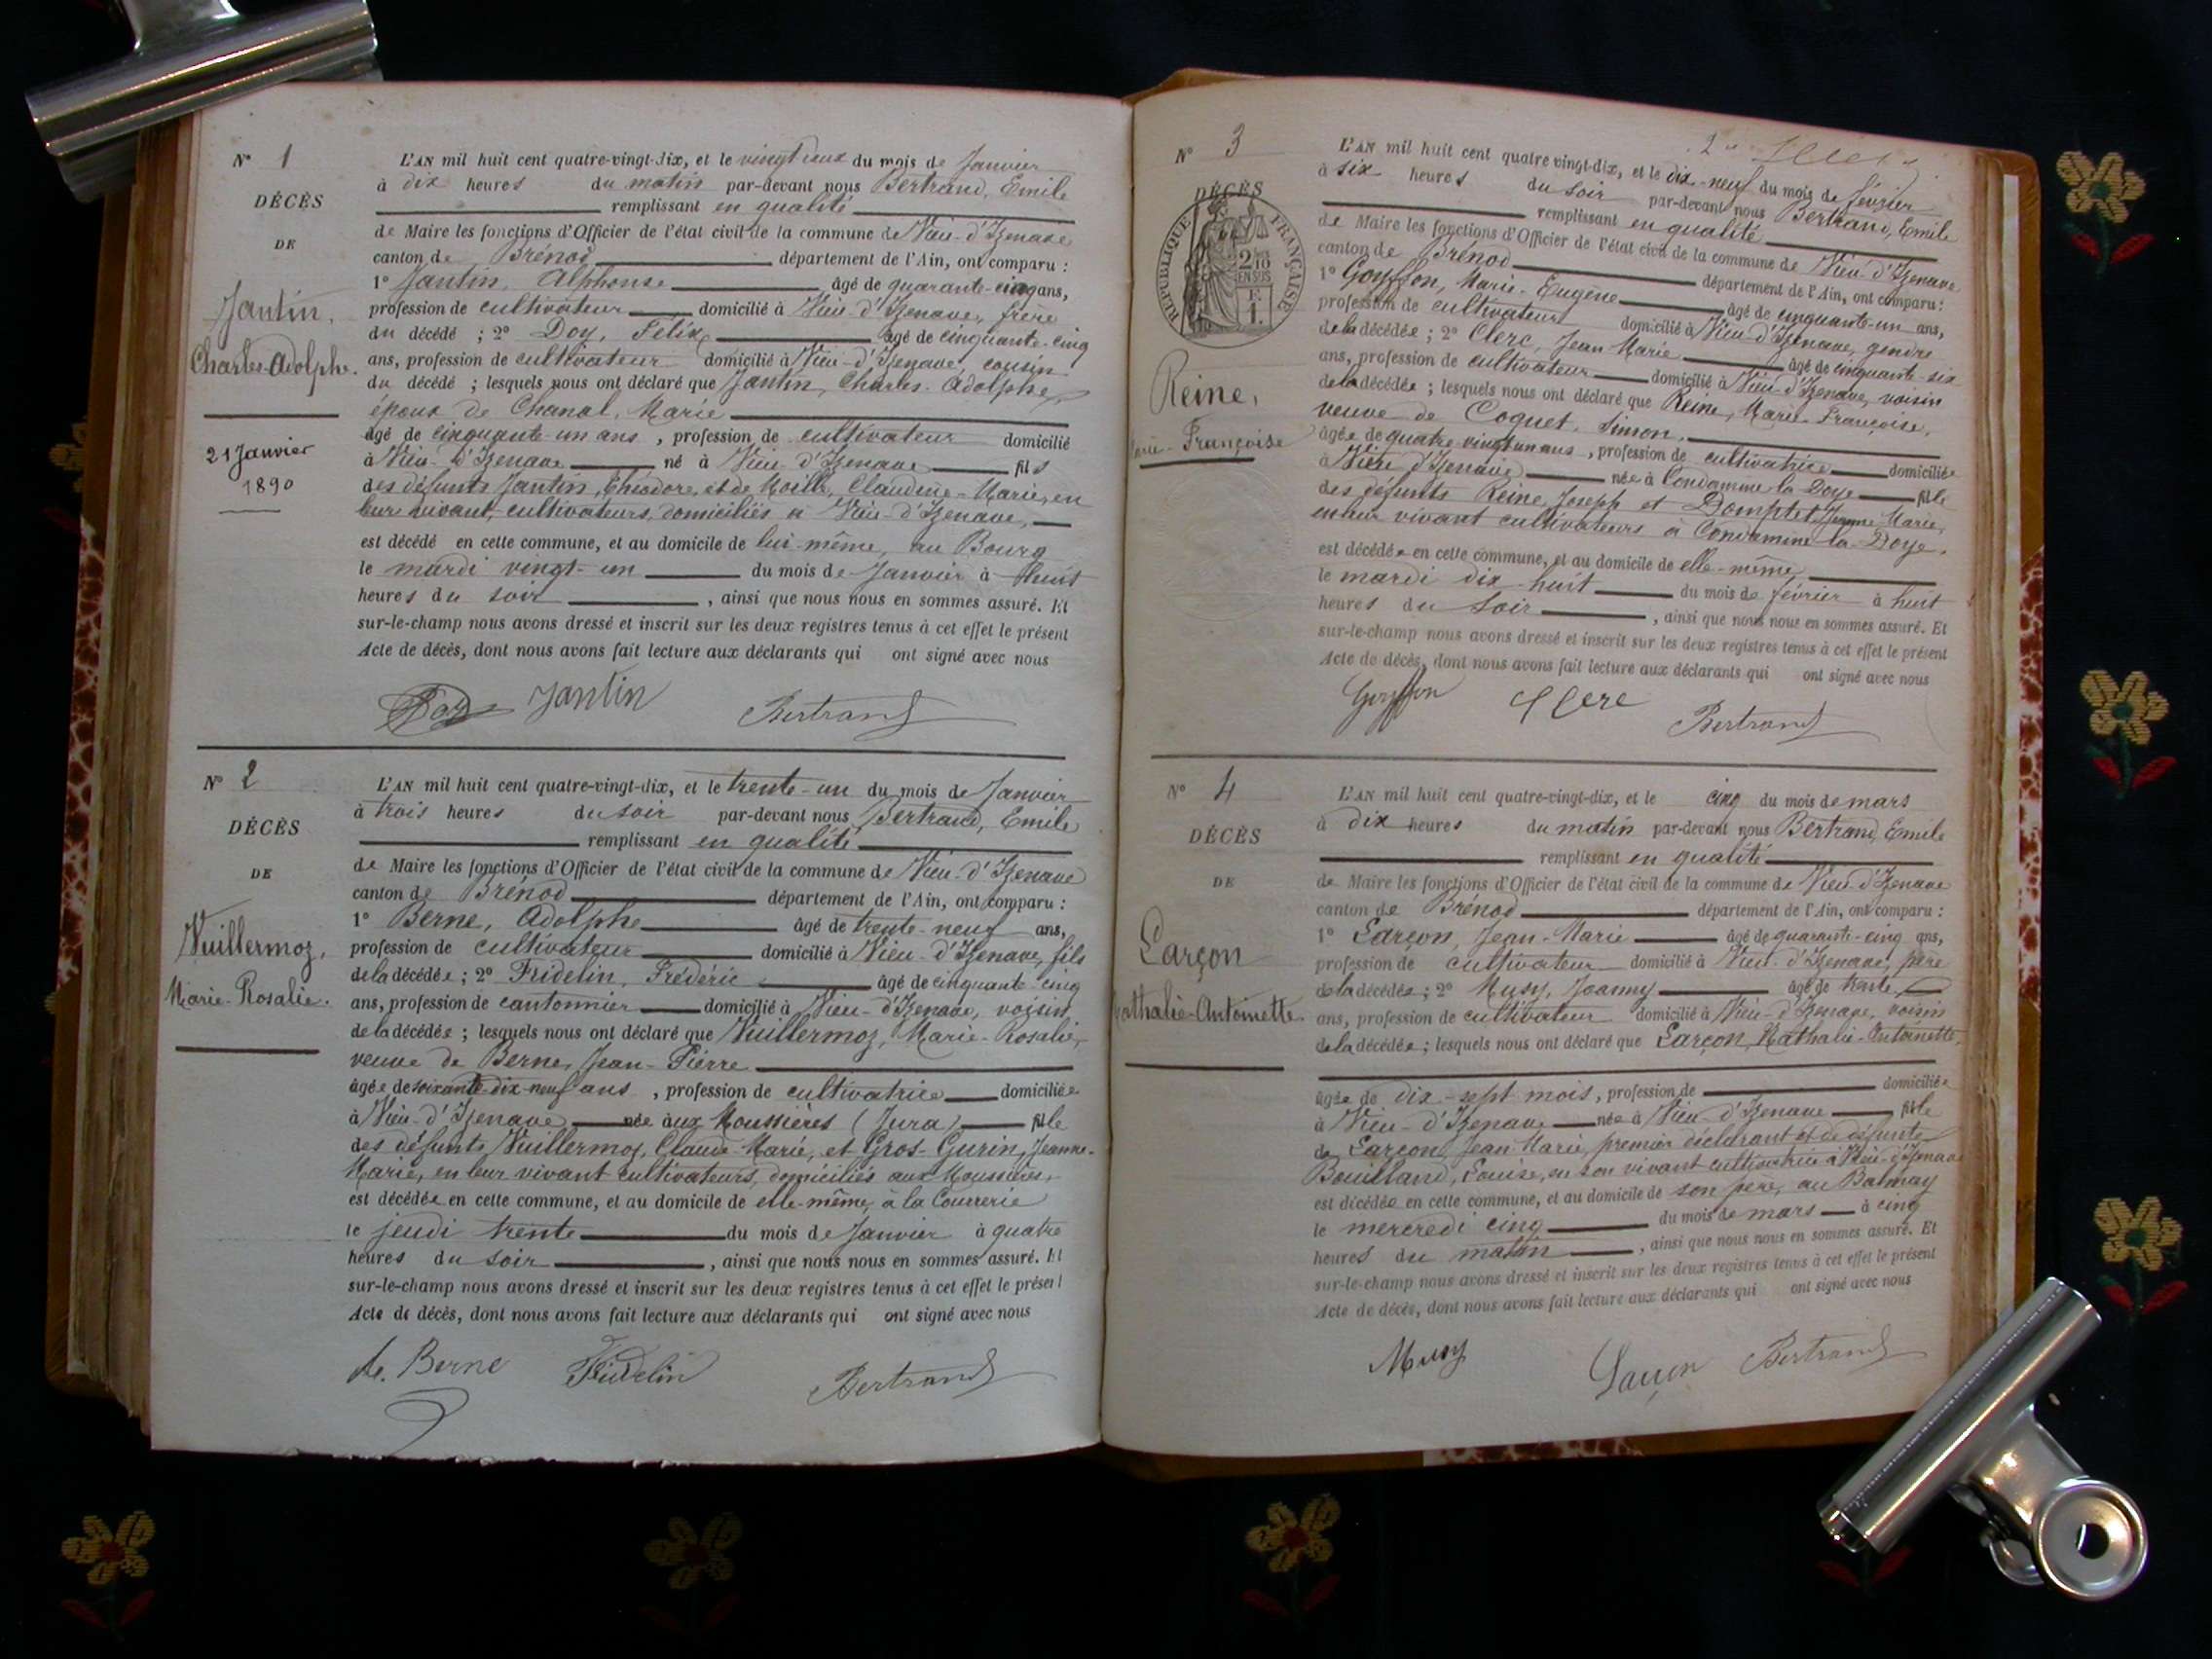 N° 1
DÉCÈS
DE
Jantin,
Charles-Adolphe.
21 Janvier
1890
L'AN mil huit cent quatre-vingt-dix, et le vingt deux du mois de Janvier
à dix heures du matin par-devant nous Bertrand, Emile
remplissant en qualité
de Maire les fonctions d'Officier de l'état civil de la commune de Vieu-d'Izenave
canton de Brénod département de l'Ain, ont comparu :
1° Jantin, Alphonse âgé de quarante-cinq ans,
profession de cultivateur domicilié à Vieu-d'Izenave, frère
du décédé ; 2° Doy, Félix âgé de cinquante-cinq
ans, profession de cultivateur domicilié à Vieu-d'Izenave, cousin
du décédé ; lesquels nous ont déclaré que Jantin, Charles-Adolphe,
époux de Chanal, Marie
âgé de cinquante-un ans, profession de cultivateur domicilié
à Vieu-d'Izenave né à Vieu-d'Izenave fils
des défunts Jantin, Théodore, et de Claudine-Marie, en
leur vivant, cultivateurs, domiciliés à Vieu-d'Izenave,
est décédé en cette commune, et au domicile de lui-même, au Bourg
le mardi vingt-un du mois de Janvier à huit
heures du soir, ainsi que nous nous en sommes assuré. Et
sur-le-champ nous avons dressé et inscrit sur les deux registres tenus à cet effet le présent
Acte de décès, dont nous avons fait lecture aux déclarants qui ont signé avec nous
Doy Jantin Bertrand
N° 2
DÉCÈS
DE
Vuillermoz,
Marie-Rosalie.
L'AN mil huit cent quatre-vingt-dix, et le trente-un du mois de Janvier
à trois heures du soir par-devant nous Bertrand, Emile
remplissant en qualité
de Maire les fonctions d'Officier de l'état civil de la commune de Vieu-d'Izenave
canton de Brénod département de l'Ain, ont comparu :
1° Berne, Adolphe âgé de trente-neuf ans,
profession de cultivateur domicilié à Vieu-d'Izenave, fils
de la décédée ; 2° Fridelin, Frédéric âgé de cinquante-cinq
ans, profession de cantonnier domicilié à Vieu-d'Izenave, voisin
de la décédée ; lesquels nous ont déclaré que Vuillermoz, Marie-Rosalie,
veuve de Berne, Jean-Pierre
âgée de soixante-dix-neuf ans, profession de cultivatrice domiciliée
à Vieu-d'Izenave née aux Moussières (Jura) fille
des défunts Vuillermoz, Claude-Marie, et Gros-Gurin, Jeanne-
Marie, en leur vivant cultivateurs, domiciliés aux Moussières,
est décédée en cette commune, et au domicile de elle-même, à la Courrerie
le jeudi trente du mois de Janvier à quatre
heures du soir, ainsi que nous nous en sommes assuré. Et
sur-le-champ nous avons dressé et inscrit sur les deux registres tenus à cet effet le présent
Acte de décès, dont nous avons fait lecture aux déclarants qui ont signé avec nous
A. Berne Fridelin Bertrand
N° 3
DÉCÈS
RÉPUBLIQUE FRANÇAISE
2/10
EN SUS
Reine,
Marie-Françoise
L'AN mil huit cent quatre vingt-dix, et le dix-neuf du mois de février
à six heures du soir par-devant nous Bertrand, Emile
remplissant en qualité
de Maire les fonctions d'Officier de l'état civil de la commune de Vieu-d'Izenave
canton de Brénod département de l'Ain, ont comparu :
1° Goyffon, Marie-Eugène âgé de cinquante-un ans,
profession de cultivateur domicilié à Vieu-d'Izenave, gendre
de la décédée ; 2° Clerc, Jean Marie âgé de cinquante-six
ans, profession de cultivateur domicilié à Vieu-d'Izenave, voisin
de la décédée ; lesquels nous ont déclaré que Reine, Marie-Françoise,
veuve de Coquet, Simon,
âgée de quatre-vingt un ans, profession de cultivatrice domiciliée
à Vieu d'Izenave née à Condamine la Doye fille
des défunts Reine, Joseph et Domptet, Jeanne Marie,
en leur vivant cultivateurs à Condamine-la-Doye.
est décédée en cette commune, et au domicile de elle-même,
le mardi dix-huit du mois de février à huit
heures du soir, ainsi que nous nous en sommes assuré. Et
sur-le-champ nous avons dressé et inscrit sur les deux registres tenus à cet effet le présent
Acte de décès, dont nous avons fait lecture aux déclarants qui ont signé avec nous
Goyffon Clerc Bertrand
N° 4
DÉCÈS
DE
Larçon
Nathalie-Antoinette
L'AN mil huit cent quatre-vingt-dix, et le cinq du mois de mars
à dix heures du matin par-devant nous Bertrand, Emile
remplissant en qualité
de Maire les fonctions d'Officier de l'état civil de la commune de Vieu-d'Izenave
canton de Brénod département de l'Ain, ont comparu :
1° Larçon, Jean-Marie âgé de quarante-cinq ans,
profession de cultivateur domicilié à Vieu-d'Izenave, père
de la décédée ; 2° Musy, Joanny âgé de trente
ans, profession de cultivateur domicilié à Vieu-d'Izenave, voisin
de la décédée ; lesquels nous ont déclaré que Larçon, Nathalie-Antoinette,
âgée de dix-sept mois, profession de domiciliée
à Vieu-d'Izenave née à Vieu-d'Izenave fille
de Larçon, Jean Marie, premier déclarant et de défunte
Bouilland, Louise, en son vivant cultivatrice à Vieu-d'Izenave
est décédée en cette commune, et au domicile de son père, au Balmay
le mercredi cinq du mois de mars à cinq
heures du matin, ainsi que nous nous en sommes assuré. Et
sur-le-champ nous avons dressé et inscrit sur les deux registres tenus à cet effet le présent
Acte de décès, dont nous avons fait lecture aux déclarants qui ont signé avec nous
Musy Larçon Bertrand